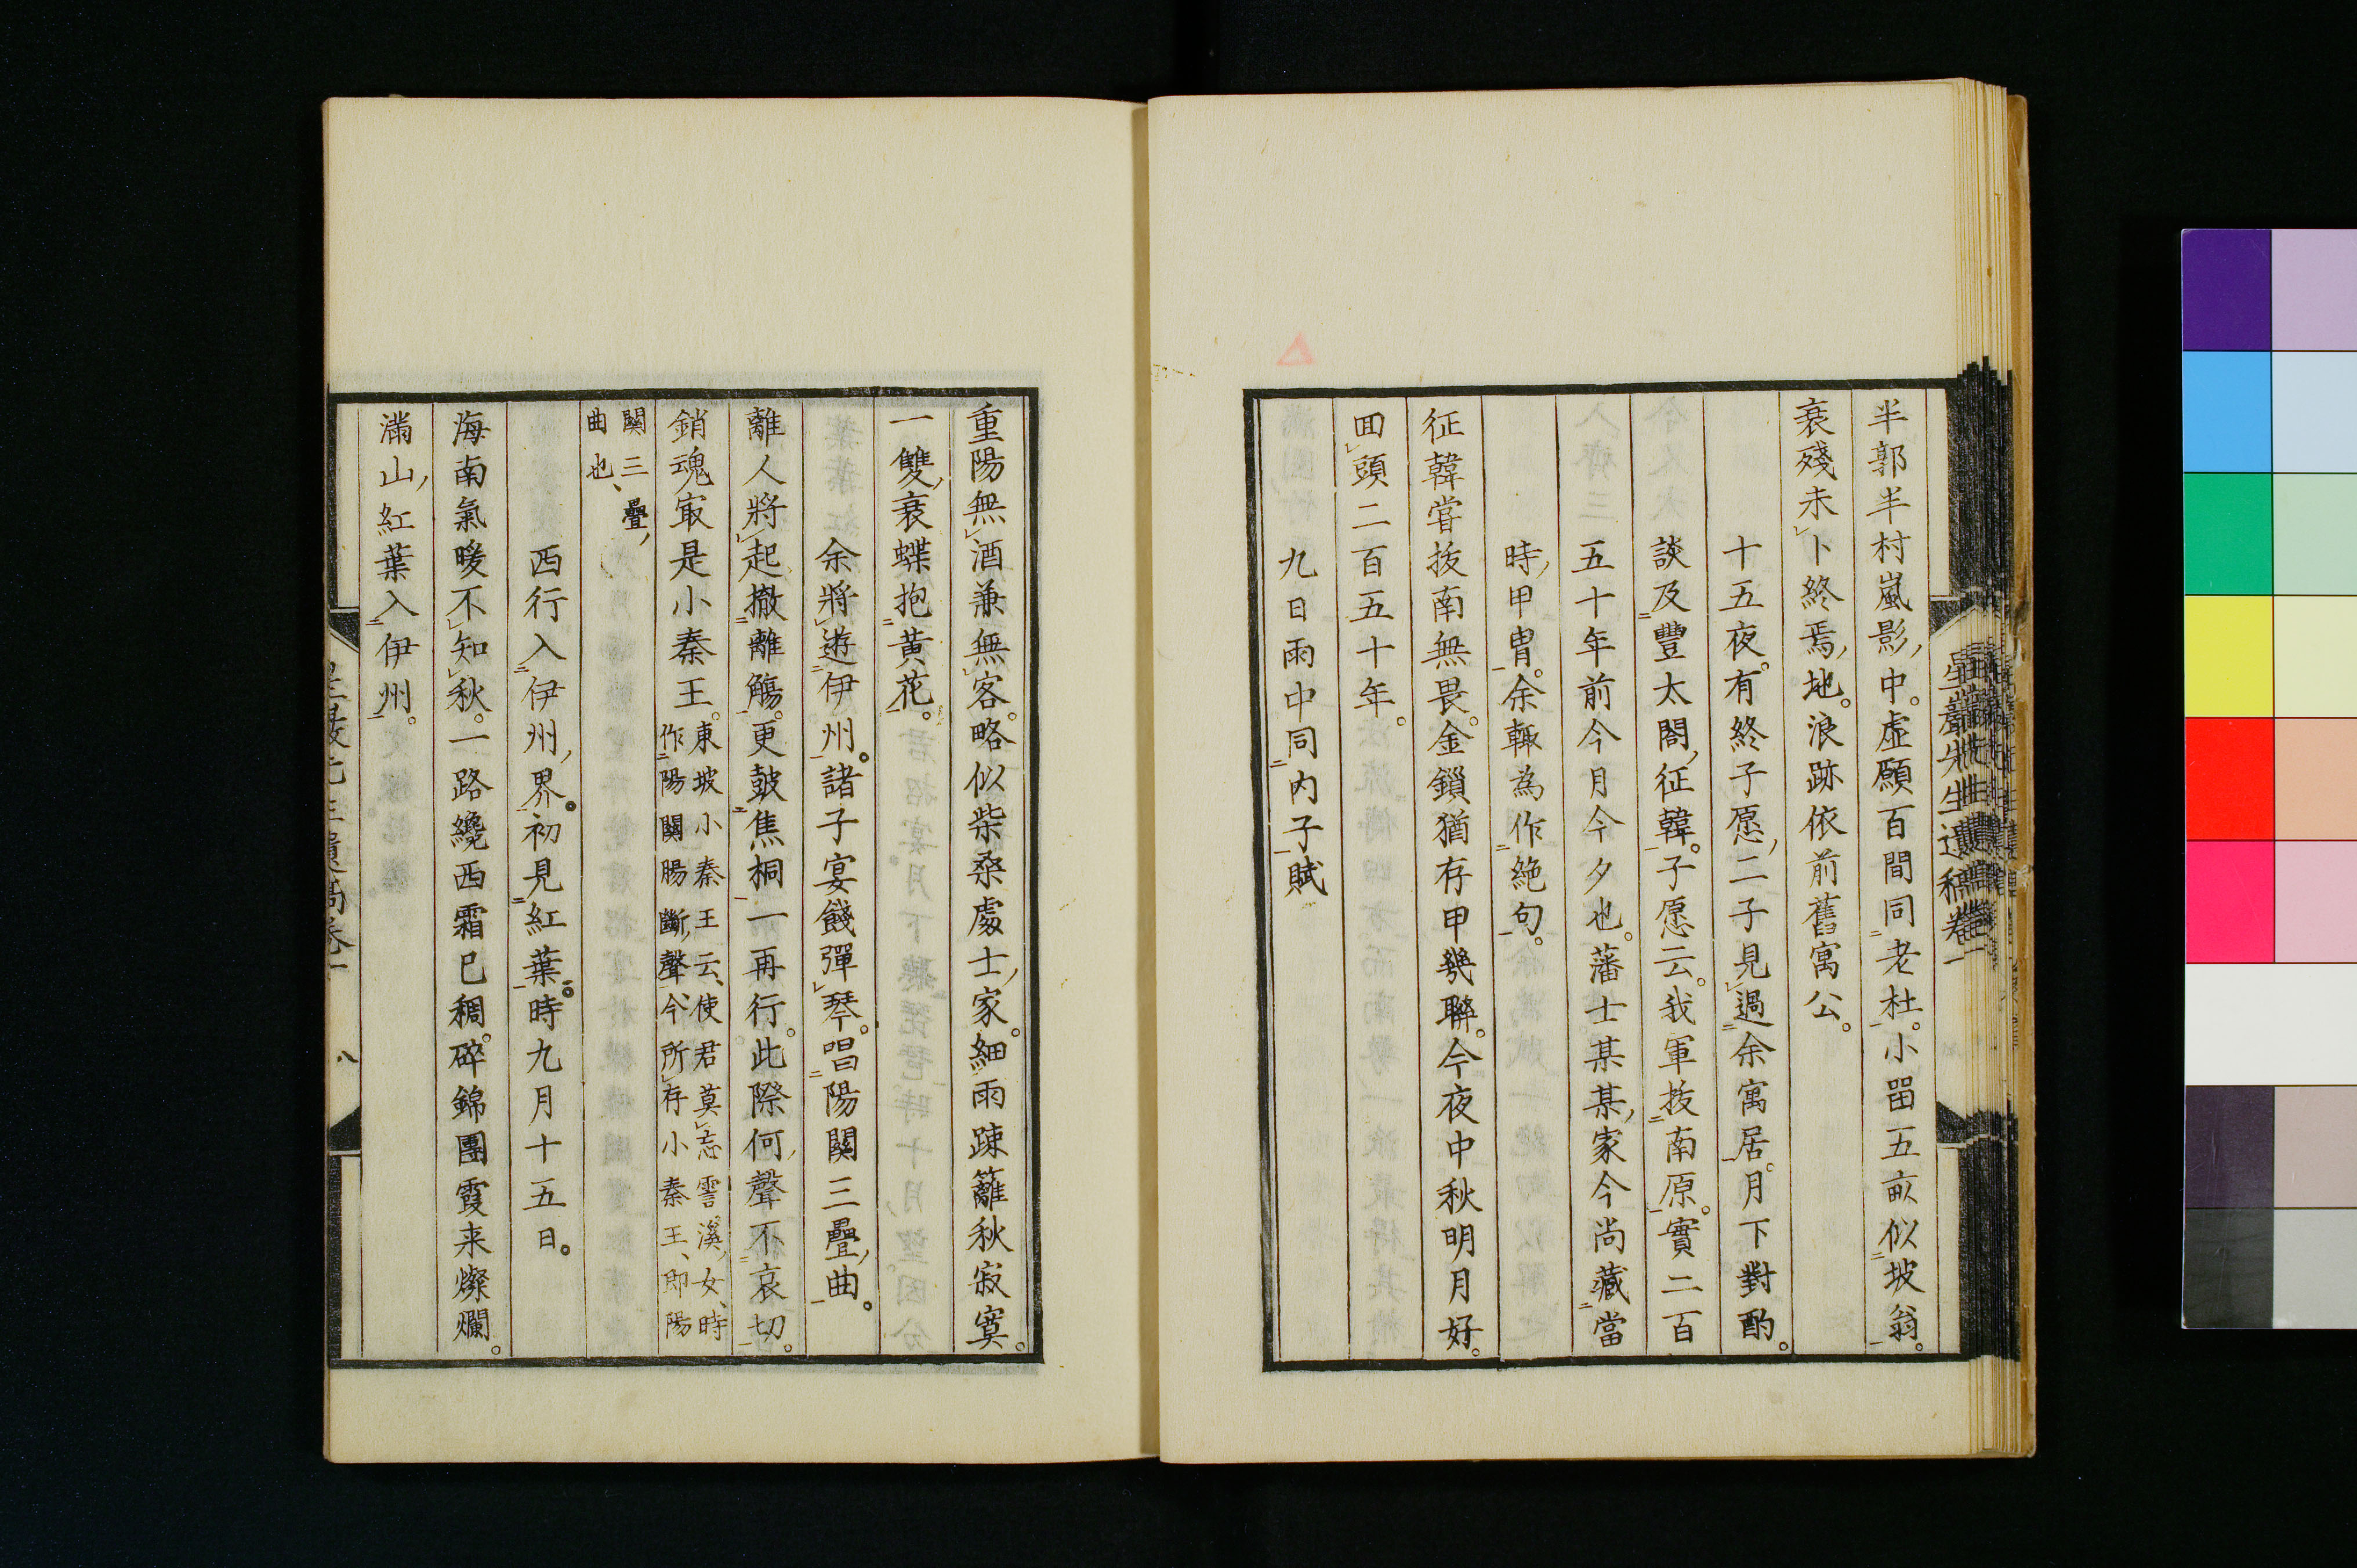 半郭半村嵐影中。虛願百間同老杜。小畱五畝似坡翁。
衰殘未卜終焉地。浪跡依前舊寓公。
十五夜。有終子愿二子見過余寓居。月下對酌。
談及豐太閤征韓。子愿云。我軍拔南原。實二百
五十年前今月今夕也。藩士某某家今尚藏當
時甲冑。余輙為作絶句。
征韓嘗拔南無畏。金鎖猶存甲幾聯。今夜中秋明月好。
回頭二百五十年。
九日雨中同內子賦
重陽無酒兼無客。略似柴桑處士家。細雨疎籬秋寂寞。
一雙衰蝶抱黃花。
余將遊伊州。諸子宴餞彈琴。唱陽關三疊曲。
離人將起撤離觴。更皷焦桐一再行。此際何聲不哀切。
銷魂㝡是小秦王。東坡小秦王云、使君莫忘霅溪女、時
作陽關腸斷聲、今所存小秦王、即陽
關三疊
曲也、
西行入伊州界。初見紅葉。時九月十五日。
海南氣暖不知秋。一路纔西霜已稠。碎錦團霞来燦爛。
滿山紅葉入伊州。
星巖先生遺稿卷一
八